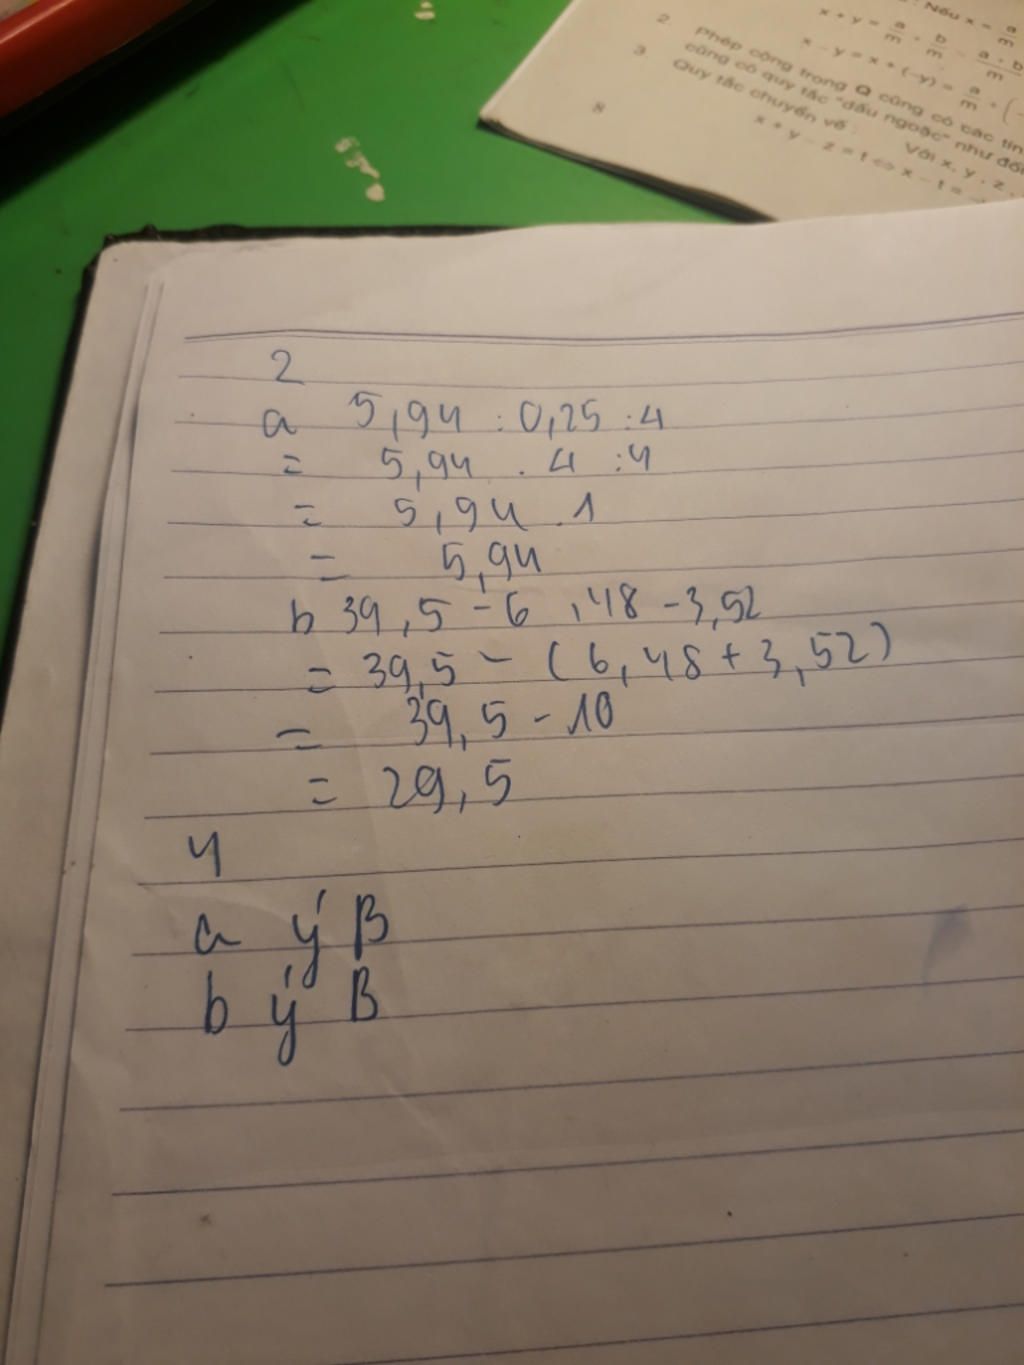 Nếu x = a/m
x + y = a/m + b/m = a + b/m
x - y = x + (-y) = a/m + (-
2. Phép cộng trong Q cũng có các tín
cũng có quy tắc "dấu ngoặc" như đối
3. Quy tắc chuyển vế : Với x, y, z,
x + y - z = t ⇔ x - t = -
8
2
a 5,94 : 0,25 : 4
= 5,94 . 4 : 4
= 5,94 . 1
= 5,94
b 39,5 - 6,48 - 3,52
= 39,5 - (6,48 + 3,52)
= 39,5 - 10
= 29,5
4
a ý B
b ý B